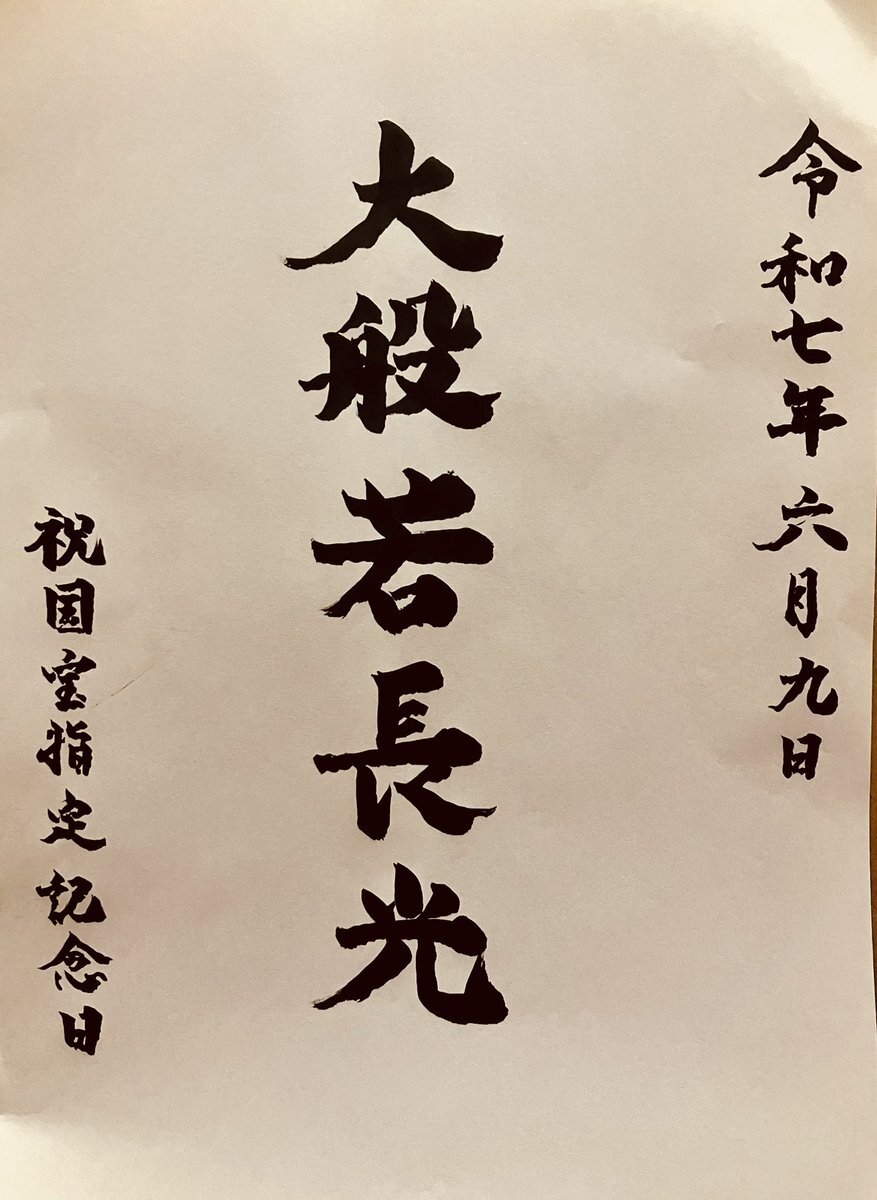 令和七年六月九日
大般若長光
祝国宝指定記念日